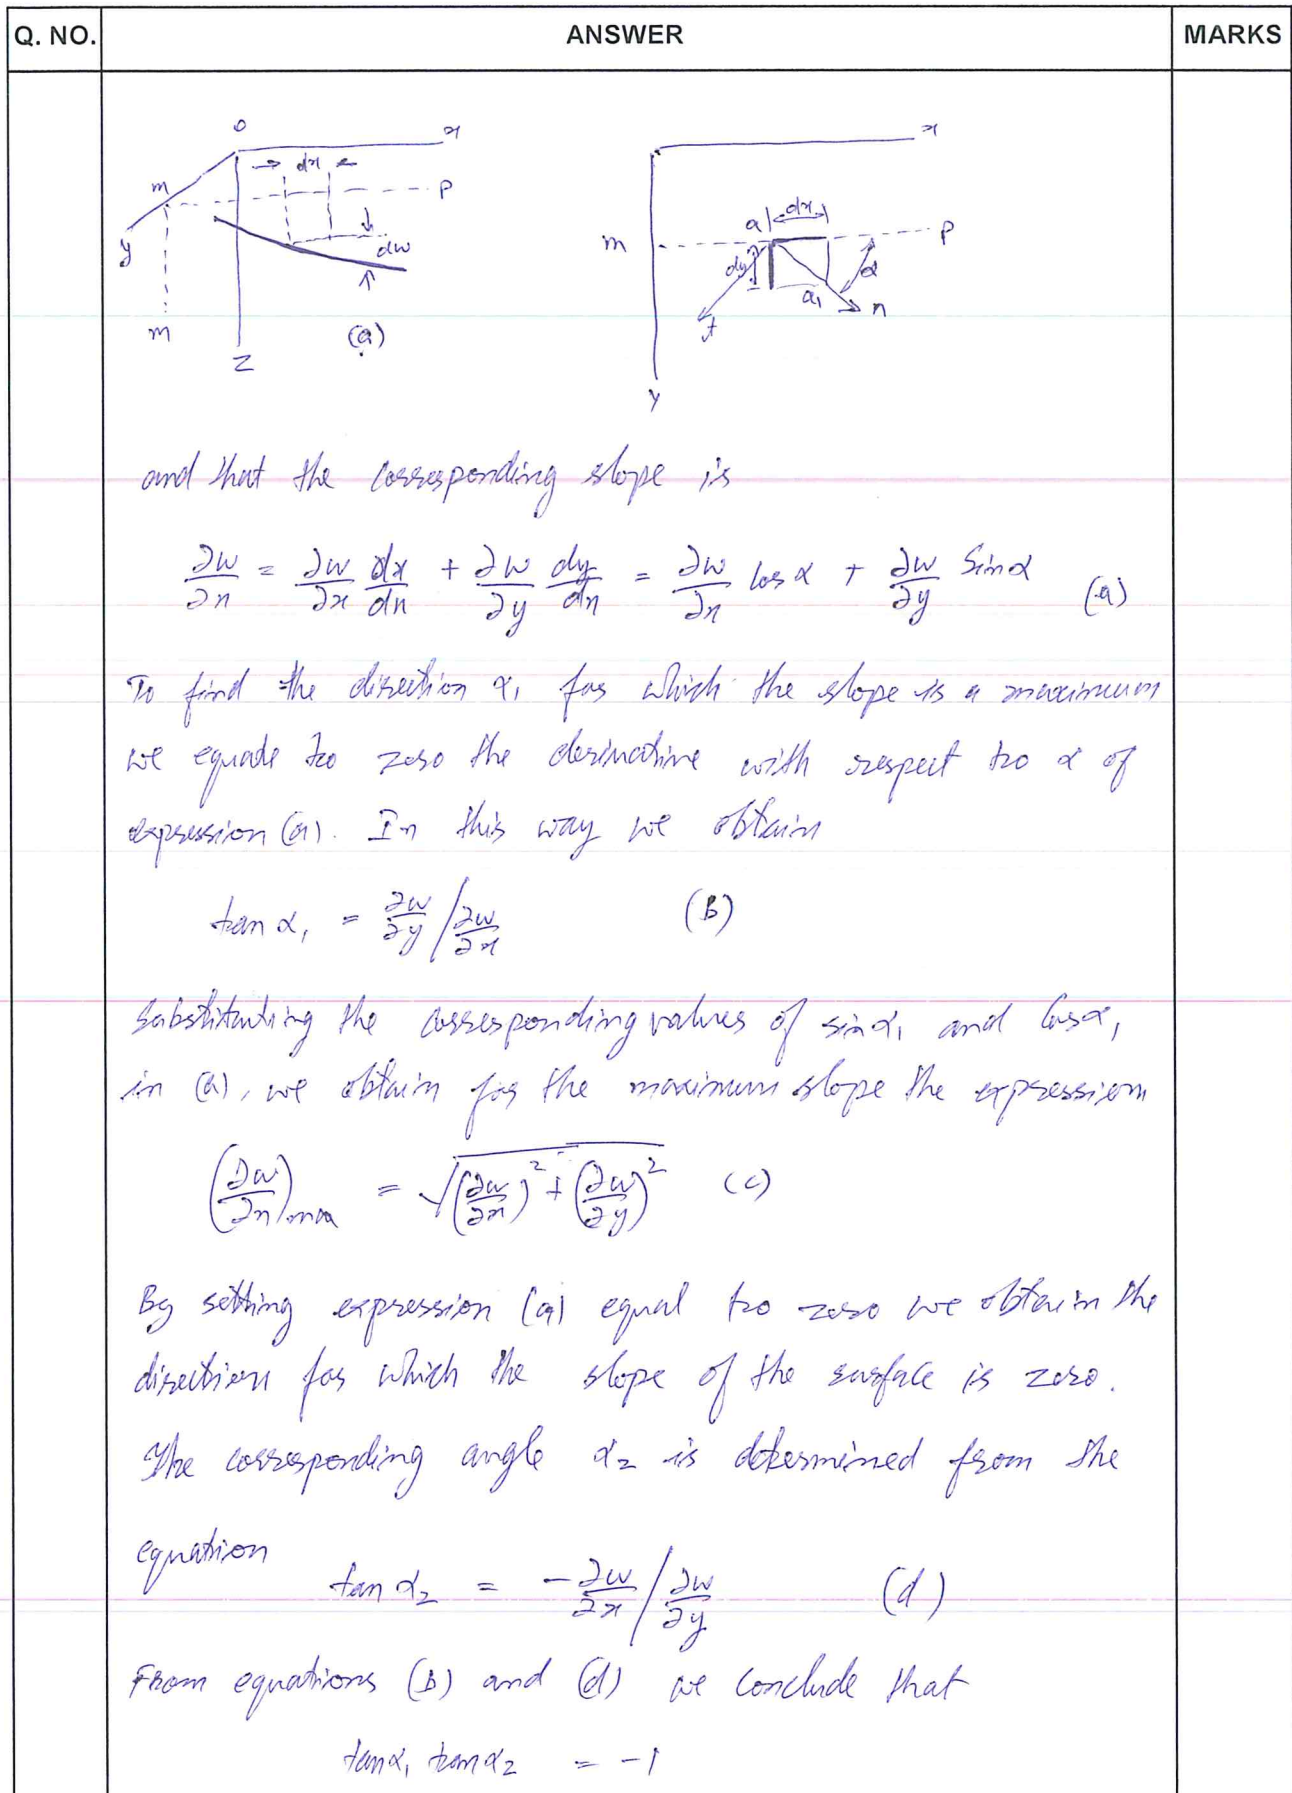 Q. NO. ANSWER MARKS
o x
dx
m P
y dw
m (a)
z
x
a dx
m P
dy α
a₁ n
t
y
and that the corresponding slope is
∂w/∂n = ∂w/∂x dx/dn + ∂w/∂y dy/dn = ∂w/∂x cos α + ∂w/∂y Sinα (a)
To find the direction α₁ for which the slope is a maximum
we equate to zero the derivative with respect to α of
expression (a). In this way we obtain
tan α₁ = ∂w/∂y / ∂w/∂x (B)
Substituting the corresponding values of sinα₁ and Cosα₁
in (a), we obtain for the maximum slope the expression
(∂w/∂n)max = √(∂w/∂x)² + (∂w/∂y)² (c)
By setting expression (a) equal to zero we obtain the
direction for which the slope of the surface is zero.
The corresponding angle α₂ is determined from the
equation
tan α₂ = -∂w/∂x / ∂w/∂y (d)
From equations (b) and (d) we conclude that
tanα₁ tanα₂ = -1